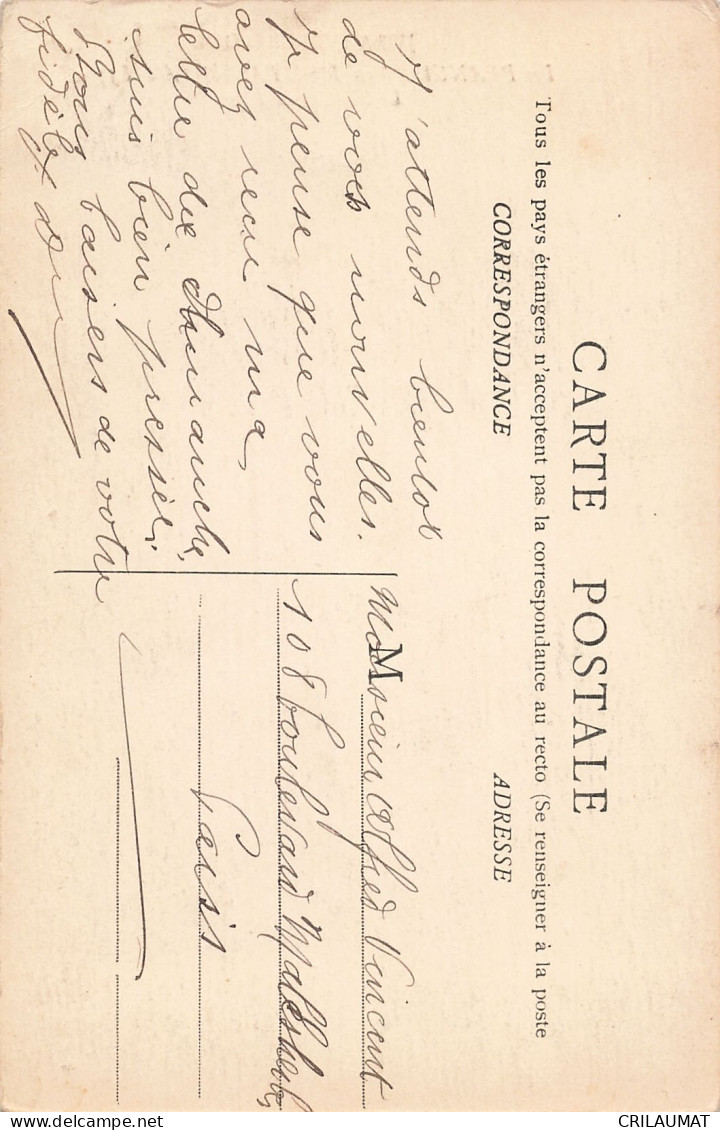 CARTE POSTALE
Tous les pays étrangers n'acceptent pas la correspondance au recto (Se renseigner à la poste
CORRESPONDANCE
ADRESSE
J'attends bientot
de vos nouvelles.
Je pense que vous
avez recu ma
lettre de dimanche,
suis bien pressée,
Bons baisers de votre
fidèle
M
Monsieur Alfred Vincent
108 boulevard Malesherbes
Paris
CRILAUMAT